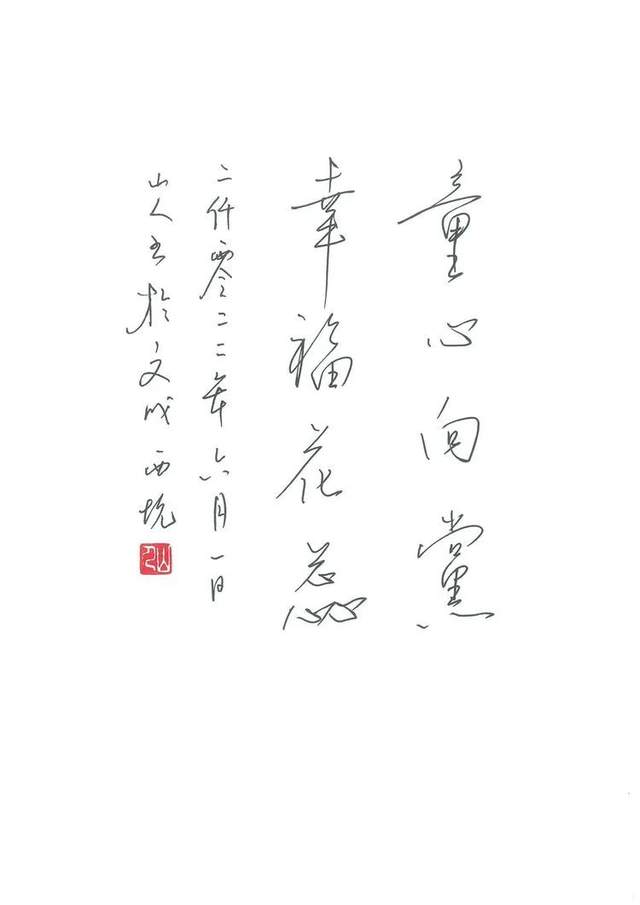 童心向黨
幸福花蕊
二仟零二二年六月一日
山人書於文成西坑
山人